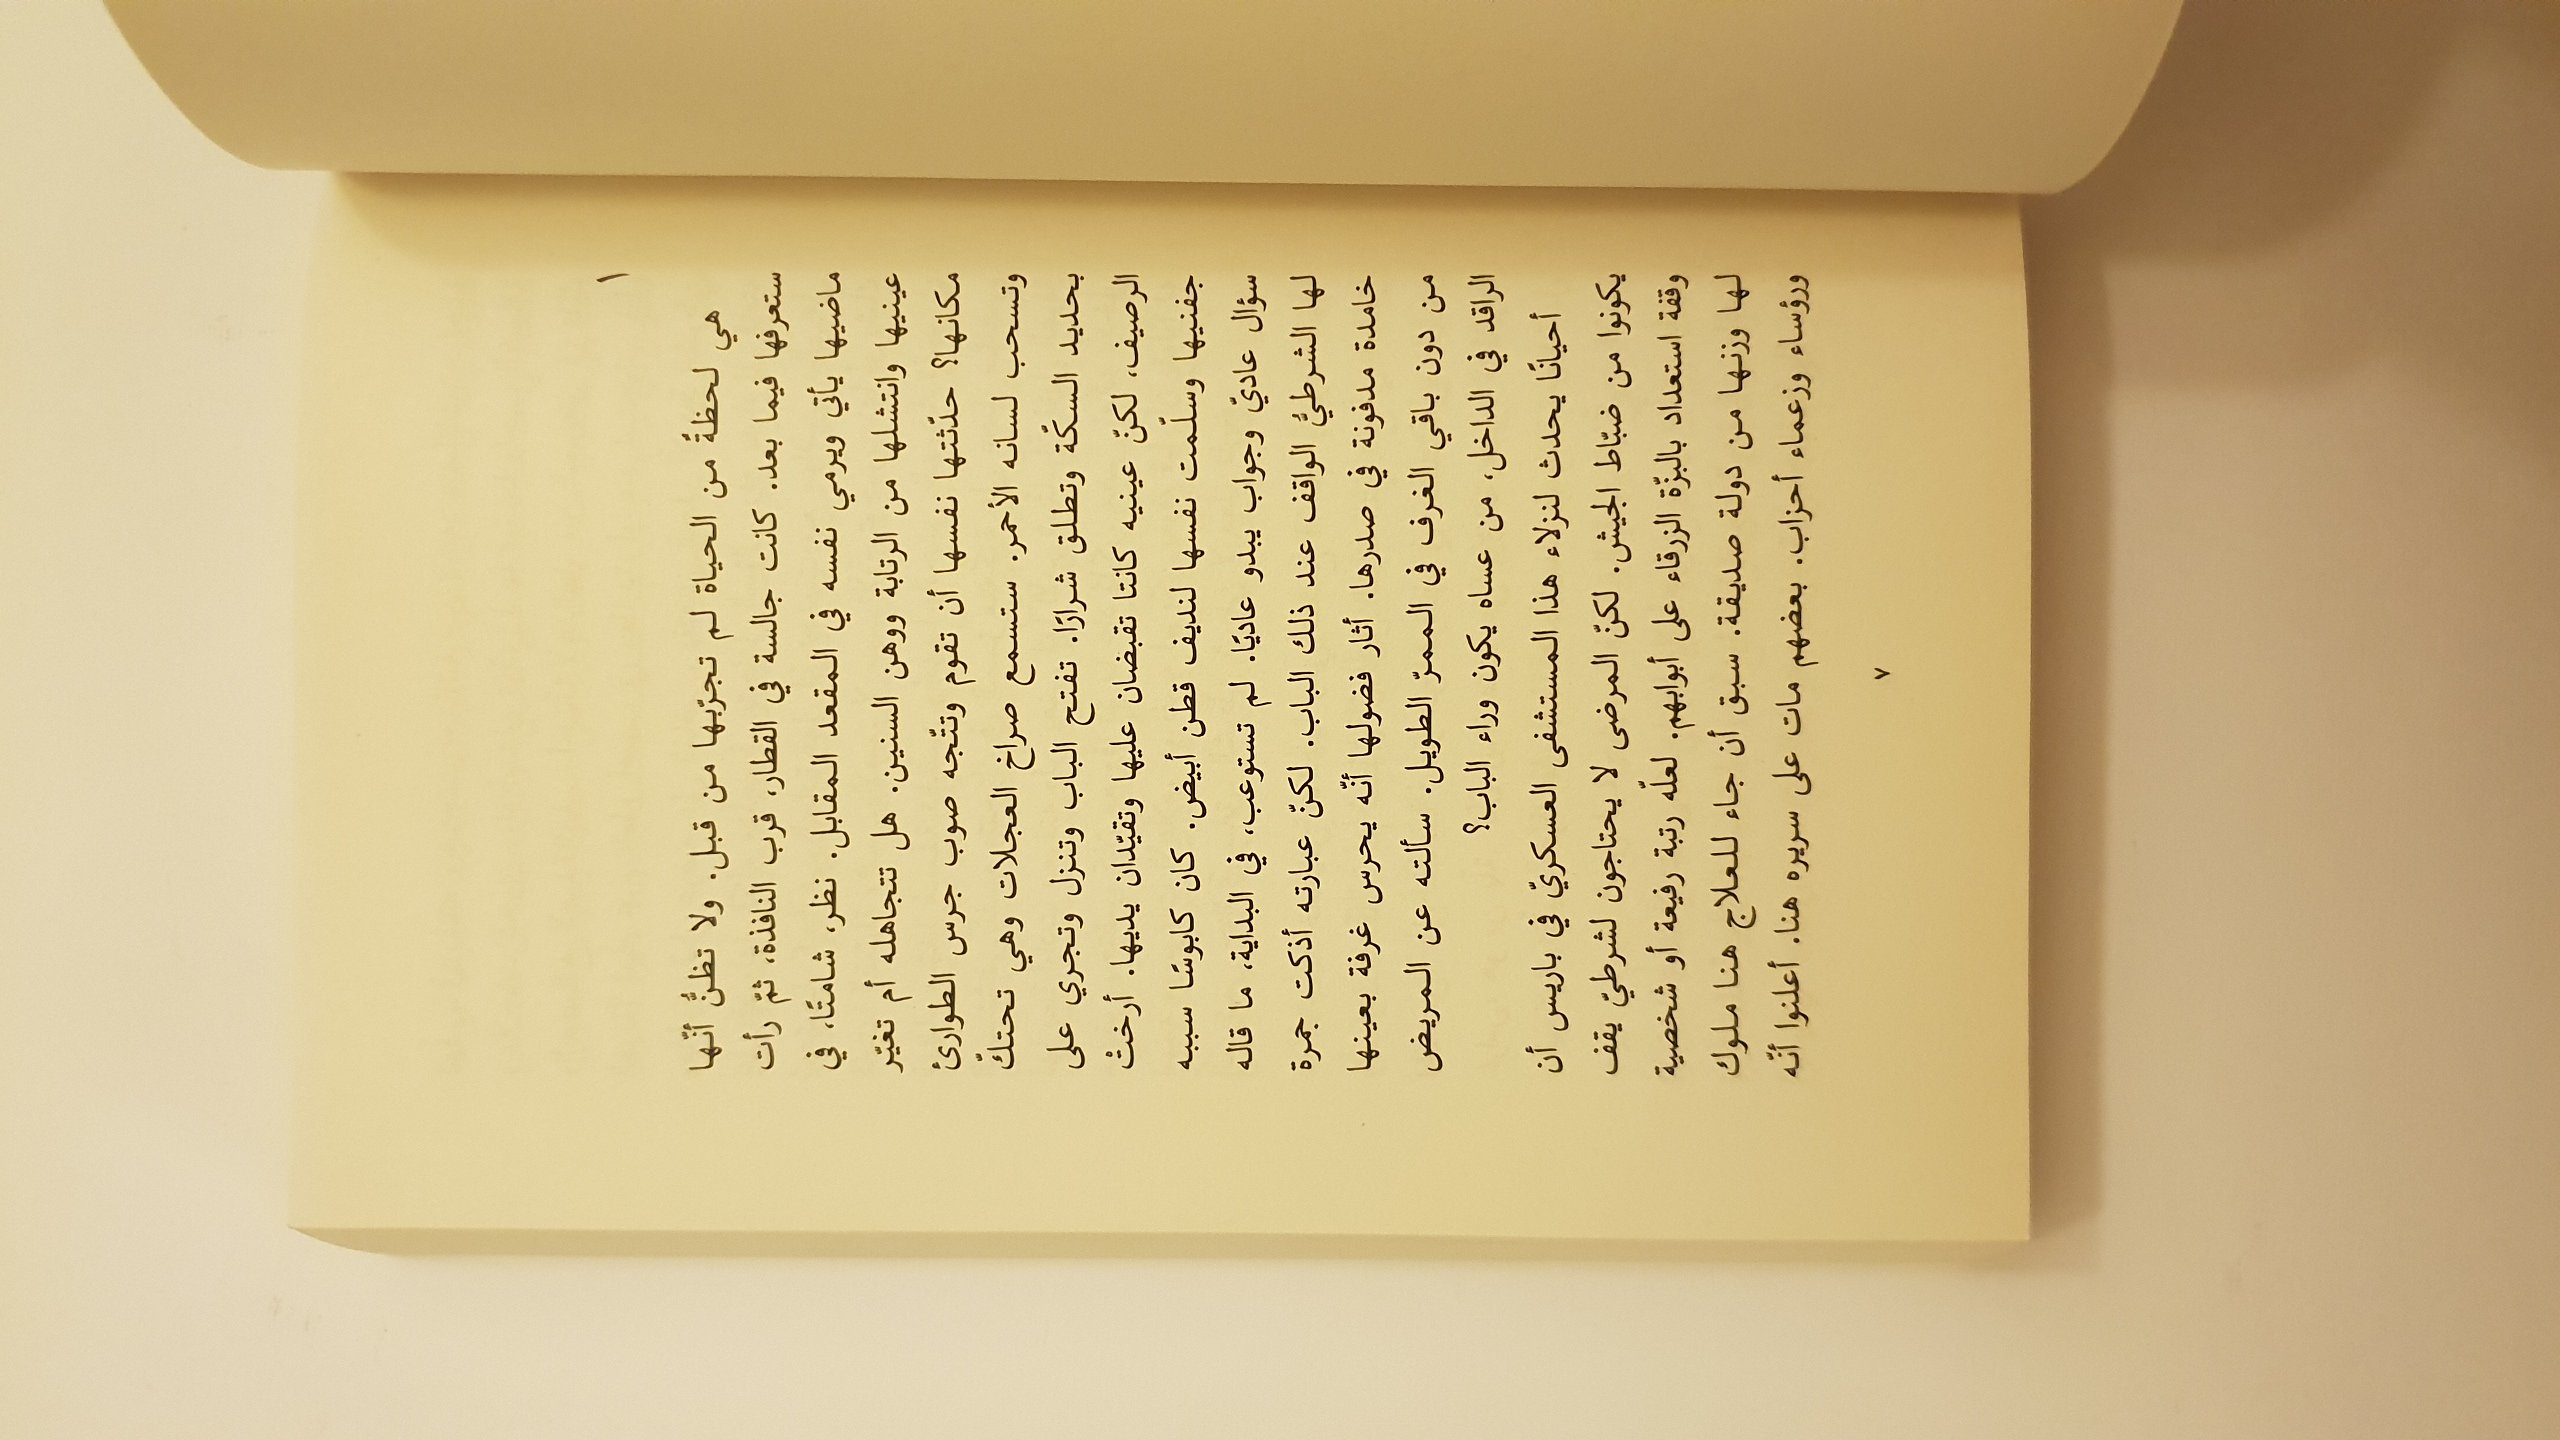 ١
هي لحظةٌ من الحياة لم تجرّبها من قبل. ولا تظنُّ أنّها
ستعرفها فيما بعد. كانت جالسة في القطار، قرب النافذة، ثمّ رأت
ماضيها يأتي ويرمي نفسه في المقعد المقابل. نظر، شامتًا، في
عينيها وانتشلها من الرتابة ووهن السنين. هل تتجاهله أم تغيّر
مكانها؟ حدّثتها نفسها أن تقوم وتتّجه صوب جرس الطوارئ
وتسحب لسانه الأحمر. ستسمع صراخ العجلات وهي تحتكّ
بحديد السكّة وتطلق شرارًا. تفتح الباب وتنزل وتجري على
الرصيف، لكنّ عينيه كانتا تقبضان عليها وتقيّدان يديها. أرختْ
جفنيها وسلّمت نفسها لنديف قطن أبيض. كان كابوسًا سببه
سؤال عاديّ وجواب يبدو عاديًا. لم تستوعب، في البداية، ما قاله
لها الشرطيُّ الواقف عند ذلك الباب. لكنّ عبارته أذكت جمرة
خامدة مدفونة في صدرها. أثار فضولها أنّه يحرس غرفة بعينها
من دون باقي الغرف في الممرّ الطويل. سألته عن المريض
الراقد في الداخل، من عساه يكون وراء الباب؟
أحيانًا يحدث لنزلاء هذا المستشفى العسكريّ في باريس أن
يكونوا من ضبّاط الجيش. لكنّ المرضى لا يحتاجون لشرطيّ يقف
وقفة استعداد بالبزّة الزرقاء على أبوابهم. لعلّه رتبة رفيعة أو شخصية
لها وزنها من دولة صديقة. سبق أن جاء للعلاج هنا ملوك
ورؤساء وزعماء أحزاب. بعضهم مات على سريره هنا. أعلنوا أنّه
٧